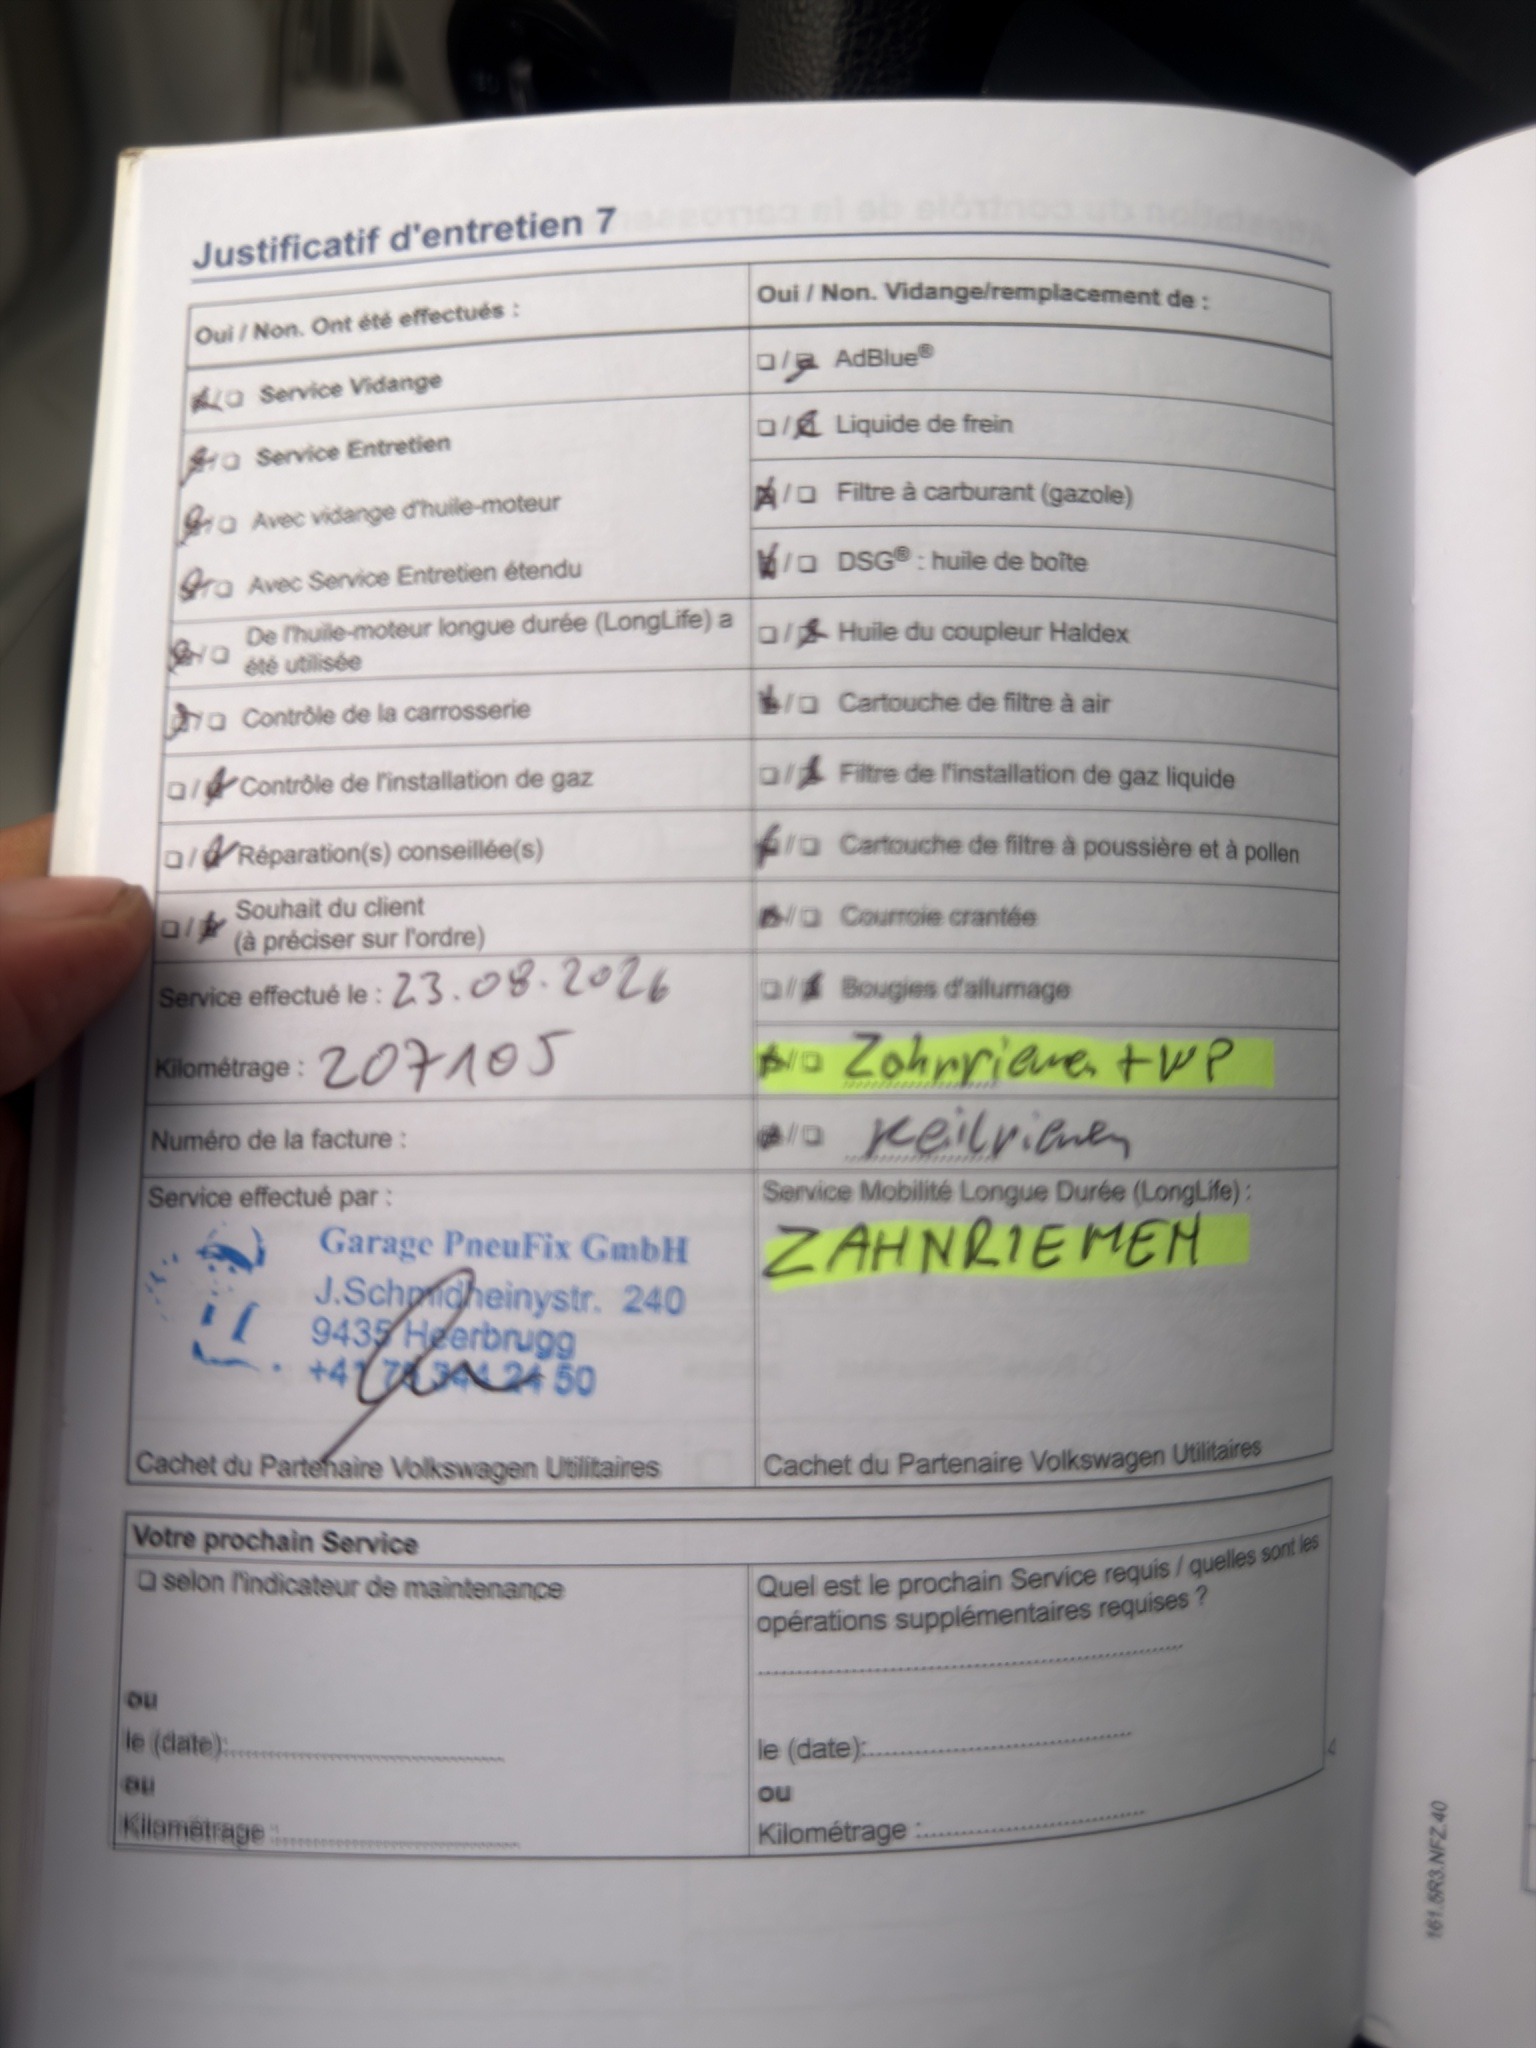 Justificatif d'entretien 7
Oui / Non. Ont été effectués :
Service Vidange
Service Entretien
Avec vidange d'huile-moteur
Avec Service Entretien étendu
De l'huile-moteur longue durée (LongLife) a
été utilisée
Contrôle de la carrosserie
Contrôle de l'installation de gaz
Réparation(s) conseillée(s)
Souhait du client
(à préciser sur l'ordre)
Service effectué le : 23.08.2026
Kilométrage : 207105
Numéro de la facture :
Service effectué par :
Garage PneuFix GmbH
J.Schmidheinystr. 240
9435 Heerbrugg
+41 50
Cachet du Partenaire Volkswagen Utilitaires
Oui / Non. Vidange/remplacement de :
AdBlue®
Liquide de frein
Filtre à carburant (gazole)
DSG® : huile de boîte
Huile du coupleur Haldex
Cartouche de filtre à air
Filtre de l'installation de gaz liquide
Cartouche de filtre à poussière et à pollen
Courroie crantée
Bougies d'allumage
Zahnriemen + WP
Keilriemen
Service Mobilité Longue Durée (LongLife) :
ZAHNRIEMEN
Cachet du Partenaire Volkswagen Utilitaires
Votre prochain Service
selon l'indicateur de maintenance
ou
le (date):
ou
Kilométrage :
Quel est le prochain Service requis / quelles sont les
opérations supplémentaires requises ?
le (date):
ou
Kilométrage :
161.5R3.NFZ.40